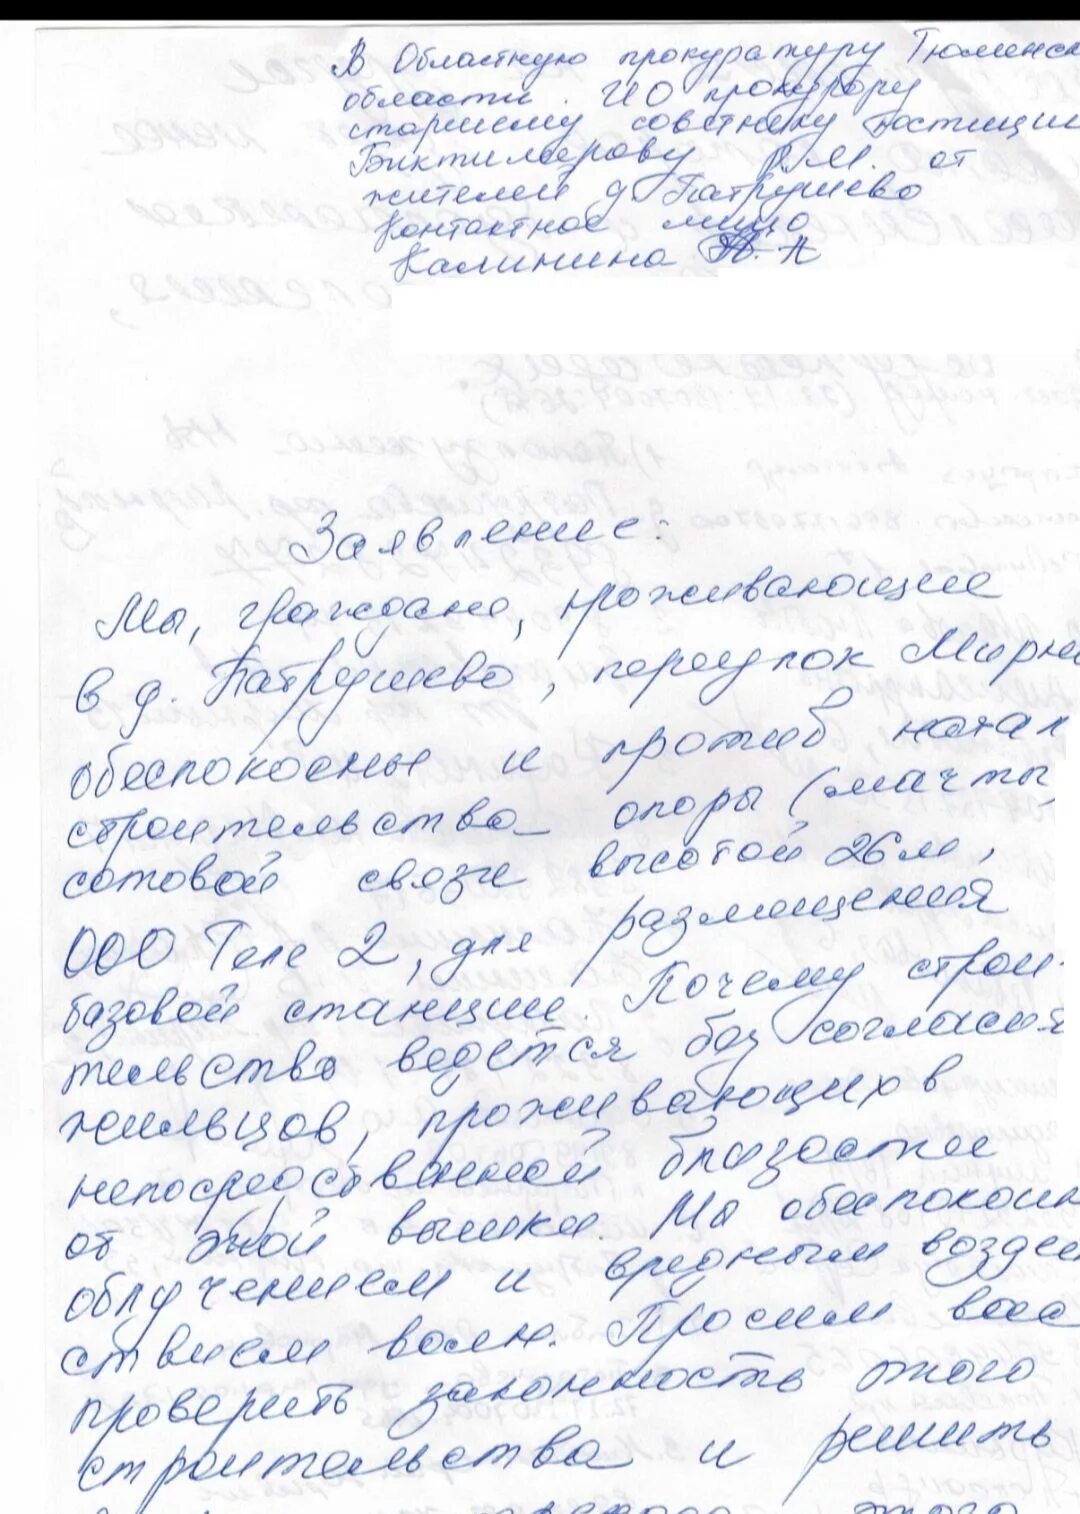 В Областную прокуратуру Тюменск
области. ИО прокурору
старшему советнику юстиции
Биктимерову Р.М. от
жителей д Патрушево
Контактное лицо
Калинина Н.А
Заявление:
Мы, граждане, проживающие
в д. Патрушево, переулок Мирн
обеспокоены и против начал
строительства опоры (мачты,
сотовой связи высотой 26м,
ООО Теле 2, для размещения
базовой станции. Почему строи-
тельство ведется без согласия
жильцов, проживающих в
непосредственной близости
от этой вышки. Мы обеспокоен
облучением и вредным воздей
ствием волн. Просим вас
проверить законность этого
строительства и решить
этого